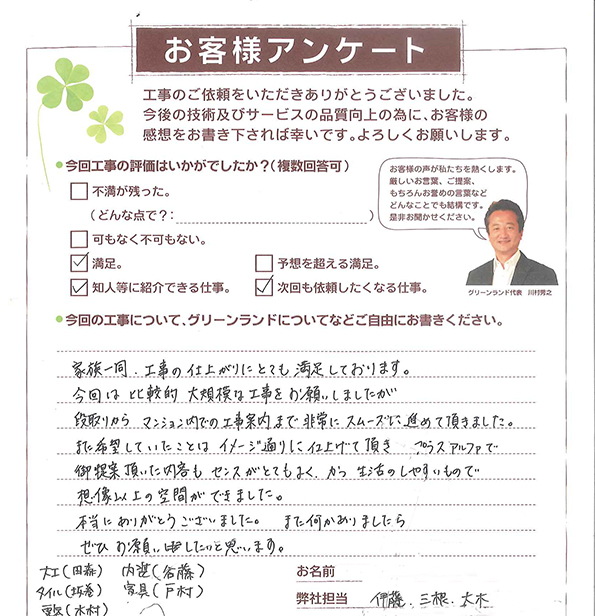 お客様アンケート
工事のご依頼をいただきありがとうございました。
今後の技術及びサービスの品質向上の為に、お客様の
感想をお書き下されば幸いです。よろしくお願いします。
●今回工事の評価はいかがでしたか？（複数回答可）
不満が残った。
（どんな点で？： ）
可もなく不可もない。
満足。
予想を超える満足。
知人等に紹介できる仕事。
次回も依頼したくなる仕事。
お客様の声が私たちを熱くします。
厳しいお言葉、ご提案、
もちろんお誉めの言葉など
どんなことでも結構です。
是非お聞かせください。
グリーンランド代表 川村秀之
●今回の工事について、グリーンランドについてなどご自由にお書きください。
家族一同、工事の仕上がりにとても満足しております。
今回は比較的 大規模な工事をお願いしましたが
段取りから マンション内での工事案内まで 非常に スムーズに 進めて頂きました。
また希望していたことは イメージ通りに仕上げて頂き プラスアルファで
御提案頂いた内容も センスがとてもよく、かつ 生活のしやすいもので
想像以上の空間ができました。
本当にありがとうございました。 また何かありましたら
ぜひ お願い申したいと思います。
大工（田森） 内装（谷藤）
タイル（坂巻） 家具（戸村）
電気（木村）
お名前
弊社担当 伊藤、三根、太木